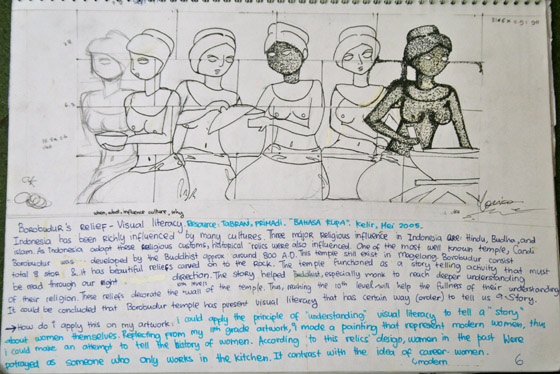 when, what, influence culture, why
Borobudur's Relief - Visual literacy. Resource: TABRANI, PRIMADI. "BAHASA RUPA". Kelir, Mei 2005.
Indonesia has been richly influenced by many cultures. Three major religious influence in Indonesia are: Hindu, Budha, and
islam. As Indonesia adapt these religious customs, historical relics were also influenced. One of the most well known temple, Candi
Borobudur was developed by the Buddhist approx around 800 A.D. This temple still exist in Magelang. Borobudur consist
total 8 stor & it has beautiful reliefs carved on to the rock. The temple functioned as a story telling activity that must
be read through our right direction. The story helped Buddhist, especially monk to reach deeper understanding
of their religion. These reliefs decorate the wall of the temple. Thus, reaching the 10th level will help the fullness of their understanding.
It could be concluded that Borobudur temple has present visual literacy that has certain way (order) to tell us a Story.
→ How do i apply this on my artwork: I could apply the principle of "understanding" visual literacy to tell a "story"
about women themselves. Reflecting from my grade artwork, "i made a painting that represent modern women, thus
i could make an attempt to tell the history of women. According to this relics' design, women in the past were
potrayed as someone who only works in the kitchen. It contrast with the idea of career-women.
modern
6